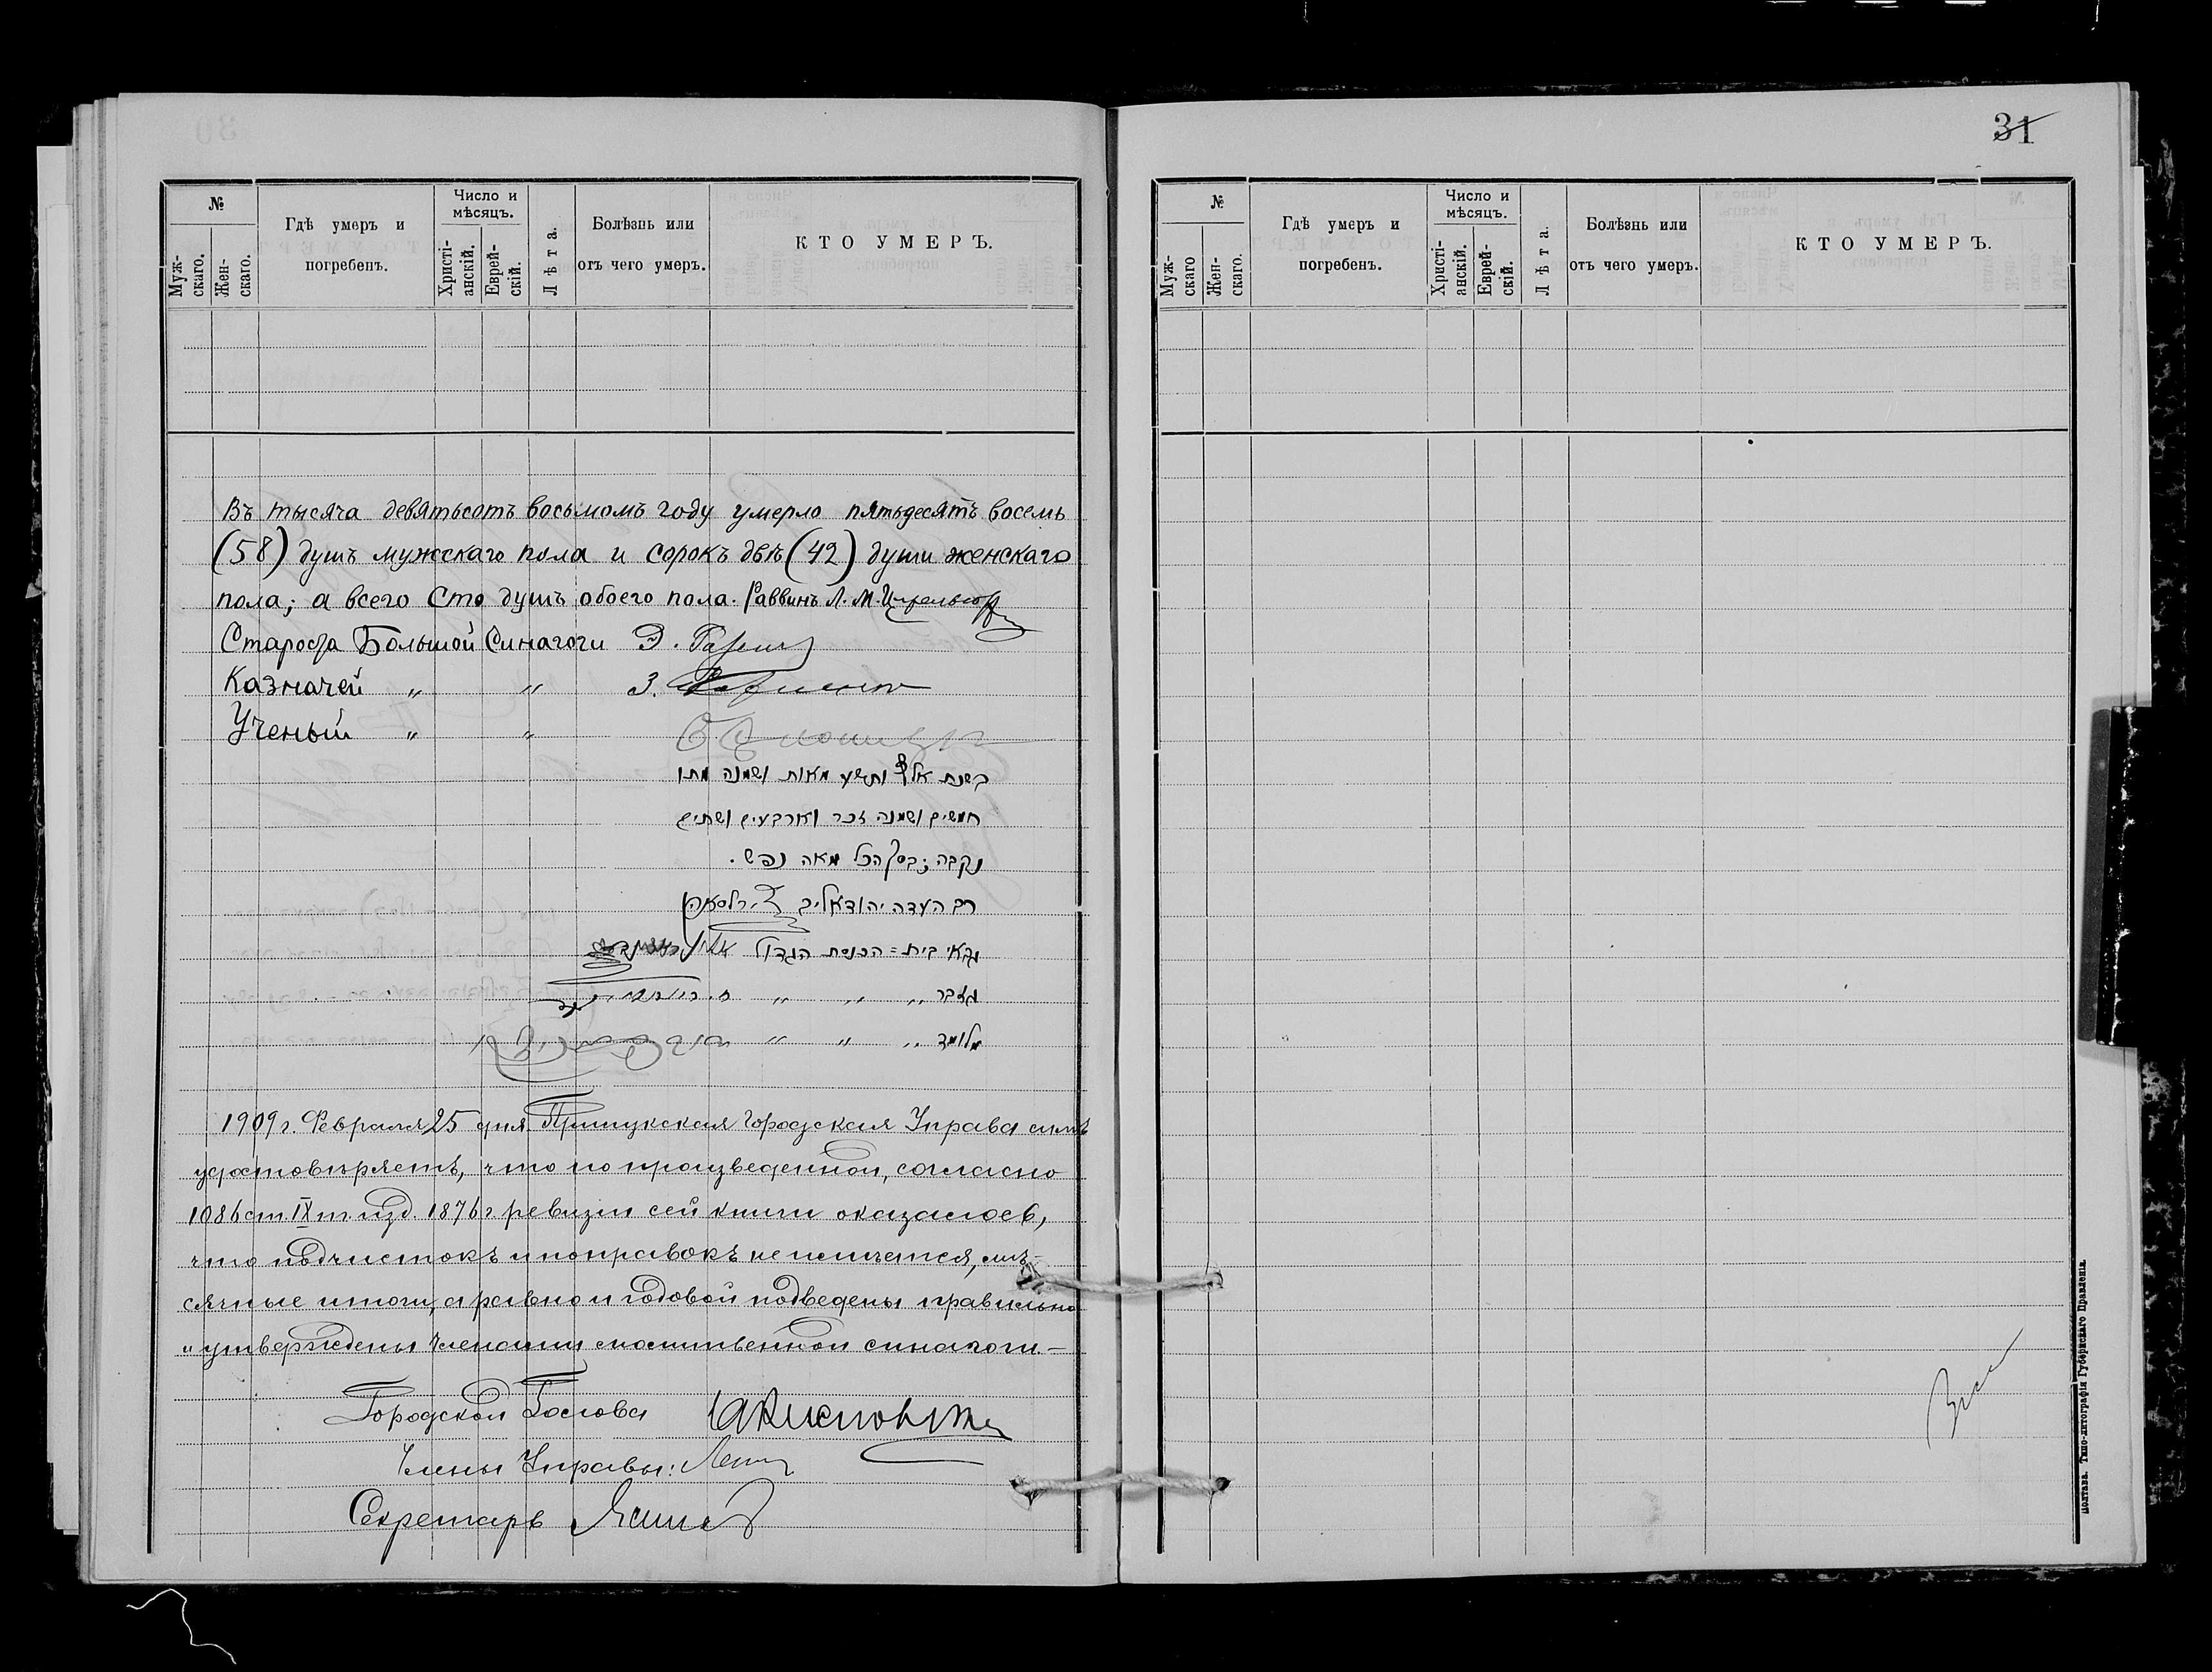 31
№
Муж-
скаго.
Жен-
скаго.
Гдѣ умеръ и
погребенъ.
Число и
мѣсяцъ.
Христі-
анскій.
Еврей-
скій.
Лѣта.
Болѣзнь или
отъ чего умеръ.
КТО УМЕРЪ.
Въ тысяча девятьсотъ восьмомъ году умерло пятьдесятъ восемь
(58) душъ мужскаго пола и сорокъ двѣ (42) души женскаго
пола; а всего сто душъ обоего пола. Раввинъ Л. М.
Староста Большой Синагоги Э.
Казначей " " З.
Ученый " "
בשנת אלף ותשע מאות ושמנה מתו
חמשים ושמנה זכר וארבעים ושתים
נקבה; בסך הכל מאה נפש.
רב העדה
גבאי בית=הכנסת הגדול
גזבר " " "
מלומד " " "
1909 г. Февраля 25 дня. Прилукская Городская Управа симъ
удостовѣряетъ, что по произведенной, согласно
1086 ст. IX т. изд. 1876 г ревизіи сей книги оказалось,
что подчистокъ и поправокъ не имѣется, мѣ-
сячные итоги, а равно и годовой подведены правильно
и утверждены Членами молитвенной синагоги.-
Городской Голова
Члены Управы:
Секретарь
№
Муж-
скаго
Жен-
скаго.
Гдѣ умеръ и
погребенъ.
Число и
мѣсяцъ.
Христі-
анскій.
Еврей-
скій.
Лѣта.
Болѣзнь или
отъ чего умеръ.
КТО УМЕРЪ.
Полтава. Типо-литографія Губернскаго Правленія.